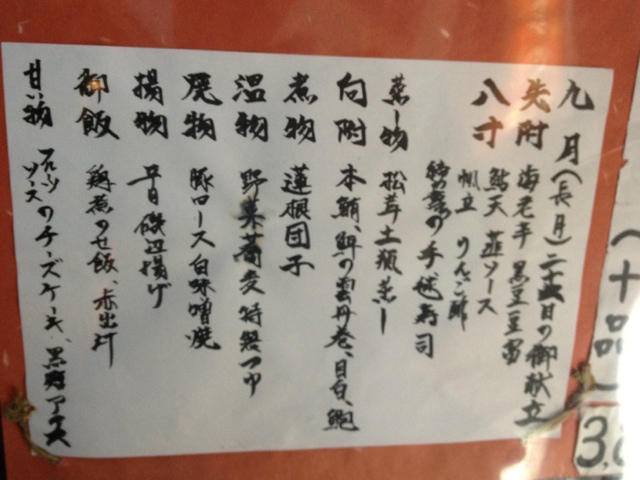 九月(長月)二十五日の御献立
先附 海老芋 黒豆豆腐
八寸 鮎天 蓝ソース
帆立 りんご酢
の手毬寿司
蒸し物 松茸土瓶蒸し
向附 本鮪、鮃の雲丹巻、目白、鮑
煮物 蓮根団子
温物 野菜蕎麦特製つゆ
焼物 豚ロース白味噌焼
揚物 平目磯辺揚げ
御飯 鶏煮のせ飯、赤出汁
甘い物 フルーツ
ソースのチーズケーキ、黒アイス
(十品)
3,